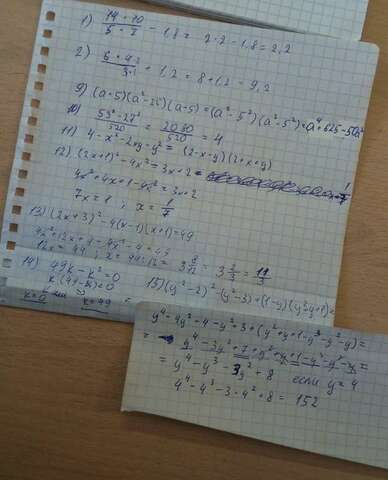 1) 14 · 10 / 5 · 7 - 1,8 = 2 · 2 - 1,8 = 2,2
2) 6 · 4 / 3 · 1 + 1,2 = 8 + 1,2 = 9,2
9) (a+5)(a²-25)(a-5) = (a²-5²)(a²-5²) = a⁴+625-50a²
10) 53²-27² / 520 = 2080 / 520 = 4
11) 4-x²-2xy-y² = (2-x-y)(2+x+y)
12) (2x+1)²-4x² = 3x+2
4x²+4x+1-4x² = 3x+2
7x = 1 ; x = 1/7
13) (2x+3)²-4(x-1)(x+1) = 49
4x²+12x+9-4x²-4 = 49
12x = 44 ; x = 44:12 = 3 8/12 = 3 2/3 = 11/3
14) 49k-k² = 0
k(49-k) = 0
k=0 или k=49
15) (y²-2)²-(y²-3)+(1-y)(y²+y+1) =
y⁴-4y²+4-y²+3+(y²+y+1-y³-y²-y) =
= y⁴-3y²+7+y²+y+1-y³-y²-y =
= y⁴-y³-3y²+8 если y=4
4⁴-4³-3·4²+8 = 152